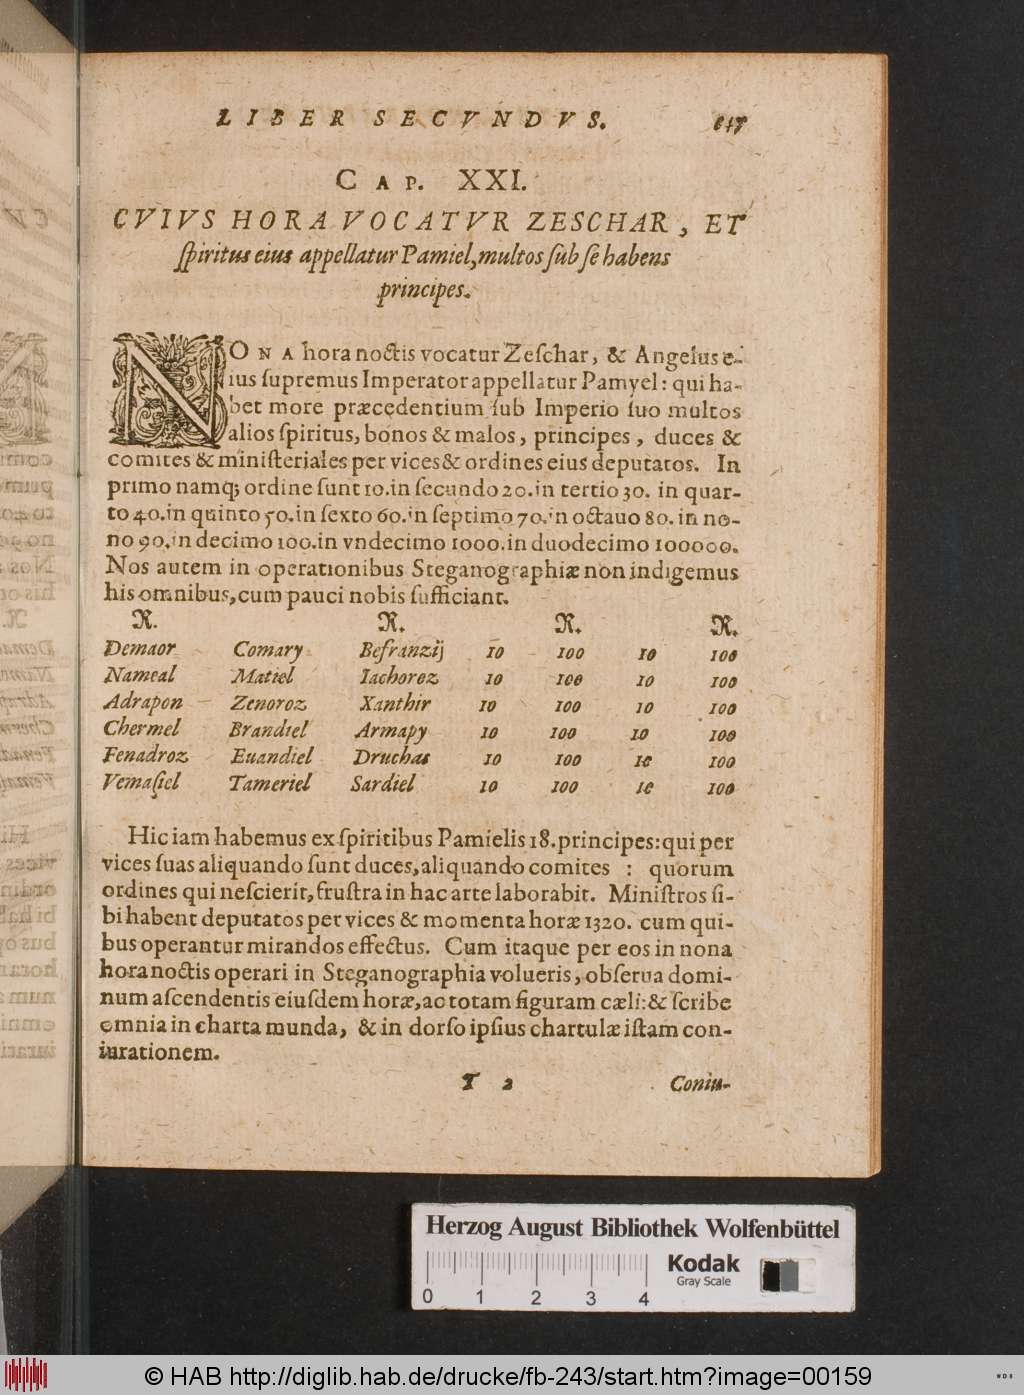 LIBER SECVNDVS.
CAP. XXI.
CVIVS HORA VOCATVR ZESCHAR, ET
ſpiritus eius appellatur Pamiel, multos ſub ſe habens
principes.
NONA hora noctis vocatur Zeſchar, & Angelus e-
ius ſupremus Imperator appellatur Pamyel: qui ha-
bet more præcedentium ſub Imperio ſuo multos
alios ſpiritus, bonos & malos, principes, duces &
comites & miniſteriales per vices & ordines eius deputatos. In
primo namq; ordine ſunt 10. in ſecundo 20. in tertio 30. in quar-
to 40. in quinto 50. in ſexto 60. in ſeptimo 70. in octauo 80. in no-
no 90. in decimo 100. in vndecimo 1000. in duodecimo 100000.
Nos autem in operationibus Steganographiæ non indigemus
his omnibus, cum pauci nobis ſufficiant.
R. R. R. R.
Demaor Comary Befranzij 10 100 10 100
Nameal Matiel Iachoroz 10 100 10 100
Adrapon Zenoroz Xanthir 10 100 10 100
Chermel Brandiel Armapy 10 100 10 100
Fenadroz Euandiel Druchas 10 100 10 100
Vemaſiel Tameriel Sardiel 10 100 10 100
Hic iam habemus ex ſpiritibus Pamielis 18. principes: qui per
vices ſuas aliquando ſunt duces, aliquando comites : quorum
ordines qui neſcierit, fruſtra in hac arte laborabit. Miniſtros ſi-
bi habent deputatos per vices & momenta horæ 1320. cum qui-
bus operantur mirandos effectus. Cum itaque per eos in nona
hora noctis operari in Steganographia volueris, obſerua domi-
num aſcendentis eiuſdem horæ, ac totam figuram cæli: & ſcribe
omnia in charta munda, & in dorſo ipſius chartulæ iſtam con-
iurationem.
T 2 Coniu-
Herzog August Bibliothek Wolfenbüttel
Kodak
Gray Scale
0 1 2 3 4
© HAB http://diglib.hab.de/drucke/fb-243/start.htm?image=00159